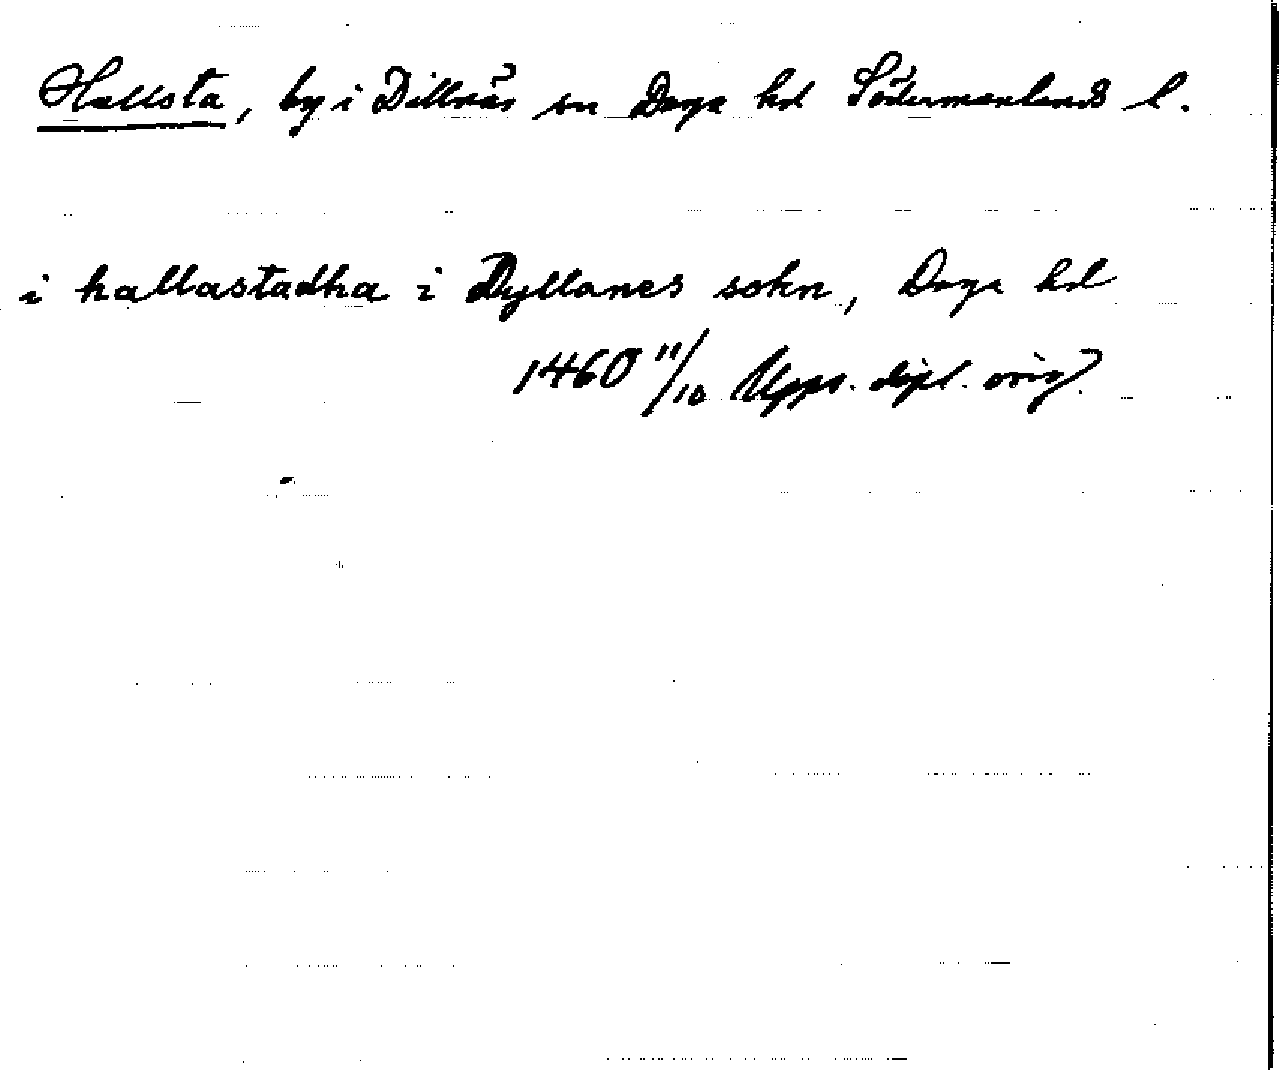 Hallsta, by i Dillnäs sn Daga hd Södermanlands l.
i hallastadha i Dyllanes sokn, Daga hd
1460 11/10 Upps. dipl. orig.